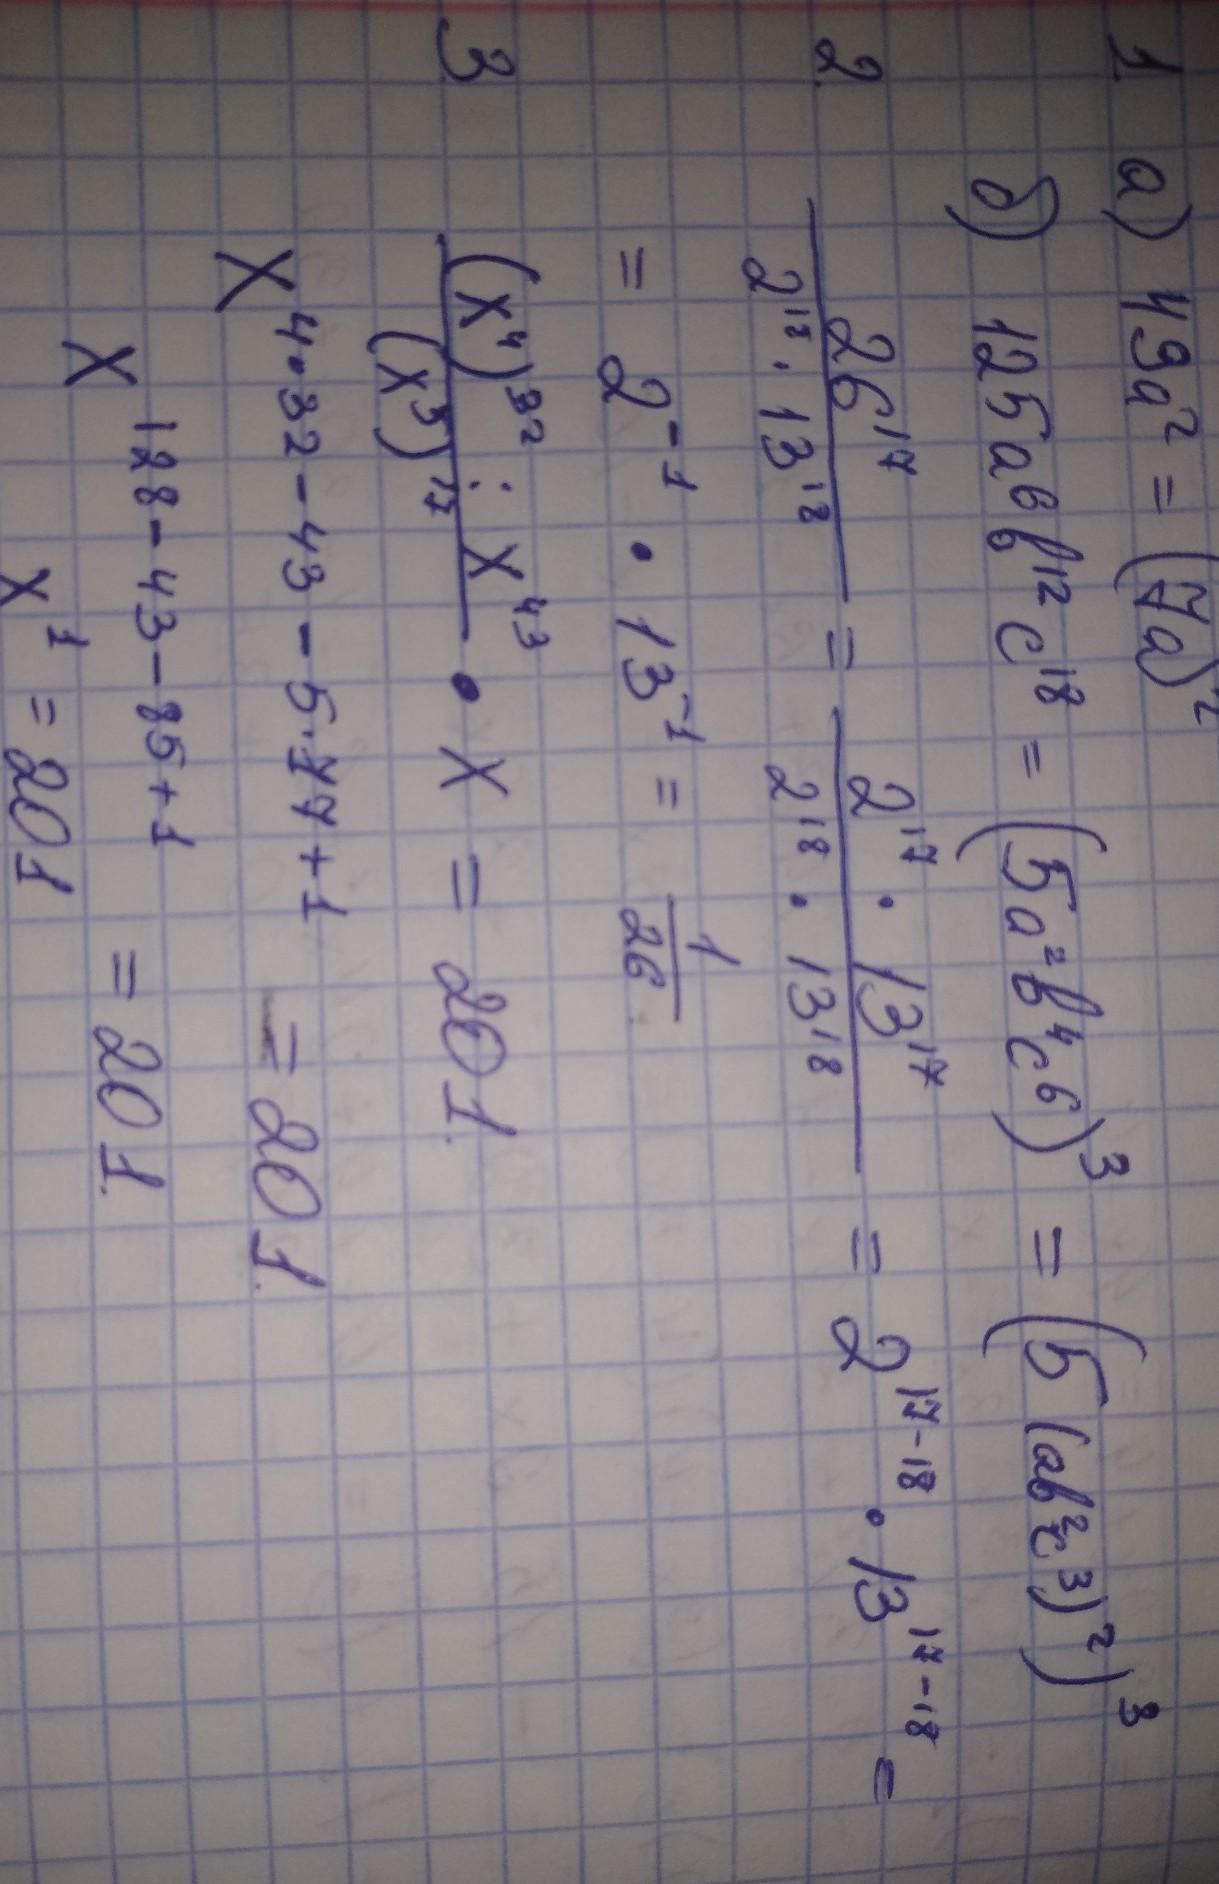 1. а) 49a² = (7a)²
б) 125a⁶b¹²c¹⁸ = (5a²b⁴c⁶)³ = (5(ab²c³)²)³
2. 26¹⁷ / (2¹⁸ · 13¹⁸) = (2¹⁷ · 13¹⁷) / (2¹⁸ · 13¹⁸) = 2¹⁷⁻¹⁸ · 13¹⁷⁻¹⁸ =
= 2⁻¹ · 13⁻¹ = 1/26.
3 ((x⁴)³² : x⁴³) / (x⁵)¹⁷ • x = 201.
x^(4·32-43-5·17+1) = 201.
x^(128-43-85+1) = 201.
x¹ = 201